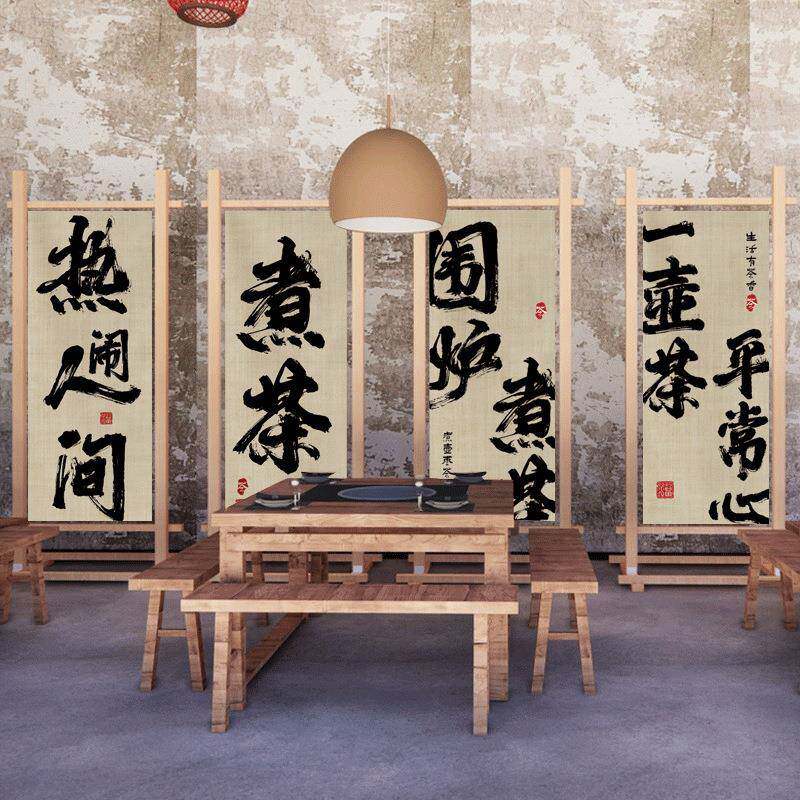 热闹
人间
煮茶
围炉
煮茶
煮壶枣茶
一壶茶
平常心
生活有茶香